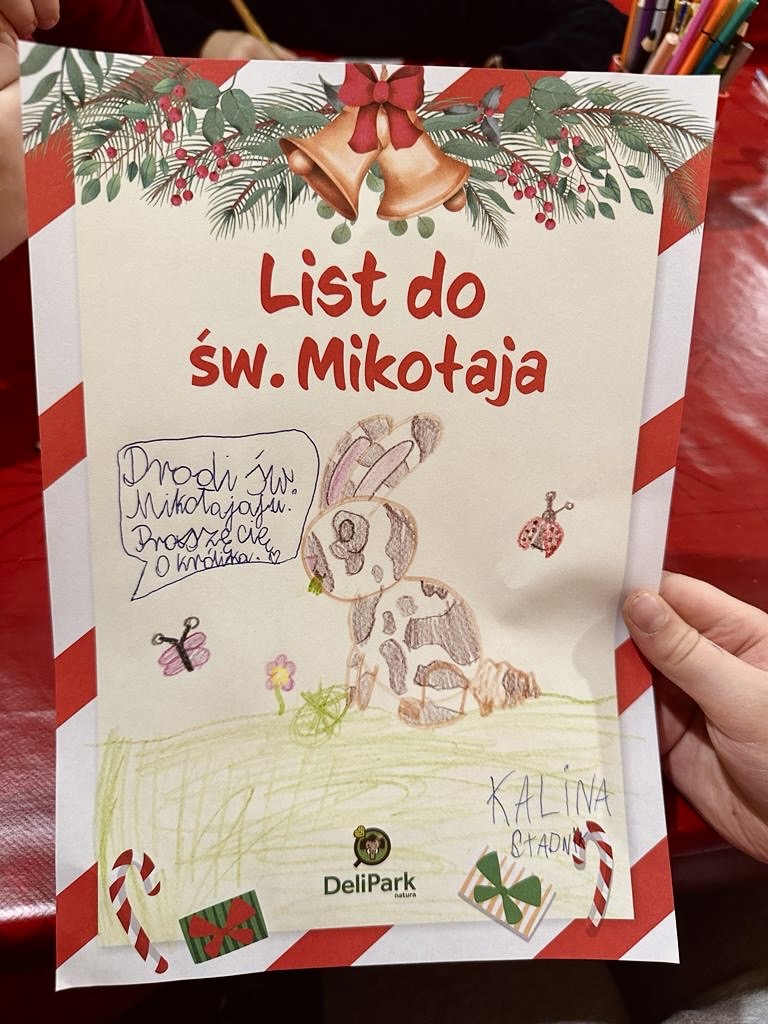 List do
św. Mikołaja
Drodi św.
Mikołajaju.
Proszę cię
O królika.
KALiNA
STADNiK
DeliPark
natura